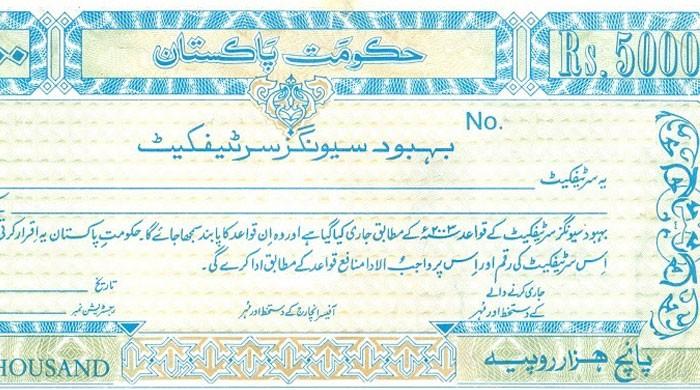 حکومت پاکستان
Rs. 5000
No.
بہبود سیونگز سرٹیفکیٹ
یہ سرٹیفکیٹ
بہبود سیونگز سرٹیفکیٹ کے قواعد ۲۰۰۳ء کے مطابق جاری کیا گیا ہے اور وہ اِن قواعد کا پابند سمجھا جائے گا۔ حکومتِ پاکستان یہ اقرار کرتی
اِس سرٹیفکیٹ کی رقم اور اِس پر واجبُ الادا منافع قواعد کے مطابق ادا کرے گی۔
تاریخ
جاری کرنے والے
کے دستخط اور مُہر
آفیسر انچارج کے دستخط اور مُہر
رجسٹریشن نمبر
پانچ ہزار روپیہ
HOUSAND